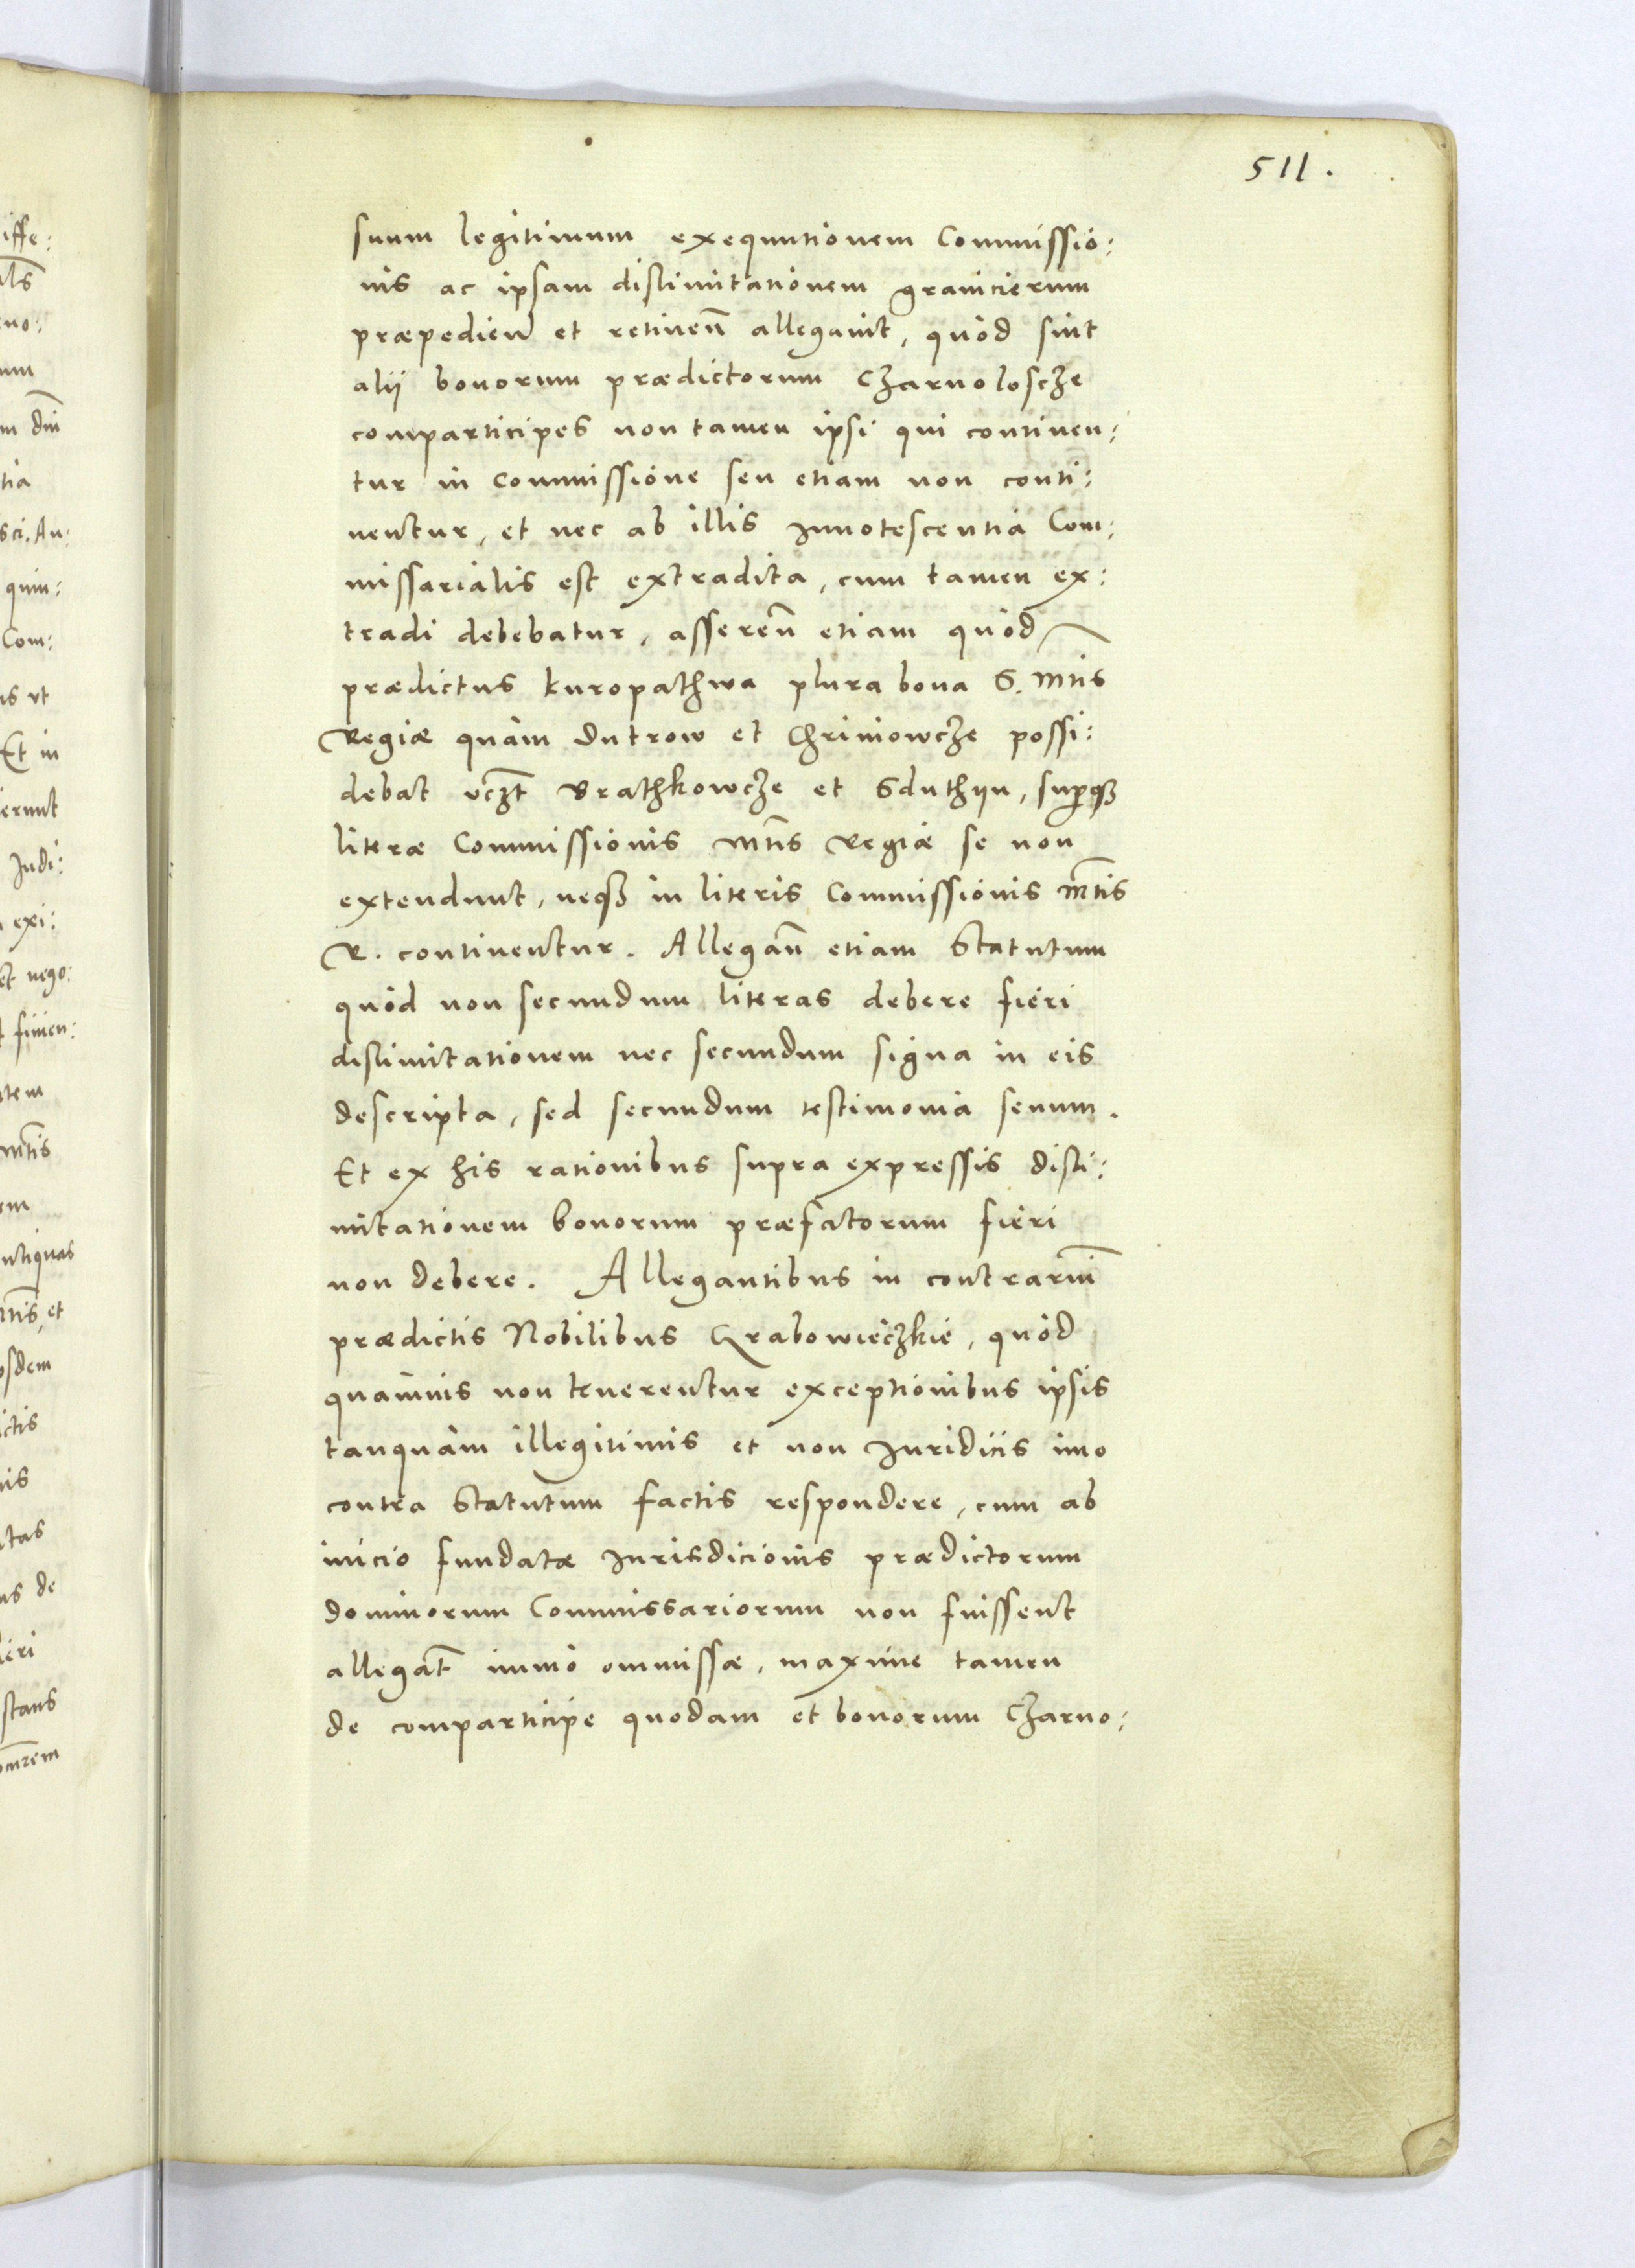 511.
suum legitimum exequutionem Commissio:
nis ac ipsam dislimitationem granicierum
præpedien̄ et retinen̄ allegavit, quòd sint
alii bonorum prædictorum Czarnolosze
comparticipes non tamen ipsi qui continen:
tur in Commissione seu etiam non conti:
nentur, et nec ab illis Innotescentia Com:
missarialis est extradita, cum tamen ex:
tradi debebatur, asseren̄ etiam quòd
prædictus Kuropathwa plura bona S. Mtis
Regiæ quàm Dutrow et Chriniowcze possi:
debat vczt Brathkowcze et Sduthyn, super qȝ
literæ Commissionis Mtis Regiæ se non
extendunt, neqȝ in literis Commissionis Mtis
R. continentur. Allegan̄ etiam Statutum
quòd non secundum literas debere fieri
dislimitationem nec secundum signa in eis
descripta, sed secundum testimonia senum.
Et ex his rationibus supra expressis disli:
mitationem bonorum præfatorum fieri
non debere. Allegantibus in contrariū
prædictis Nobilibus Grabowieczkie, quòd
quamvis non tenerentur exceptionibus ipsis
tanquàm illegitimis et non Iuridicis imo
contra Statutum factis respondere, cum ab
inicio fundatæ Iurisdicionis prædictorum
dominorum Commissariorum non fuissent
allegat̄ immò ommissæ, maxime tamen
de comparticipe quodam et bonorum Czarno:
iffe:
no:
um
tia
sci. An:
quin:
Com:
is vt
Et in
erunt
Judi:
exi:
et nego:
finien:
tem
Mtis
em
ntiquas
Mtis, et
psdem
ictis
nis
tas
us de
ieri
stans